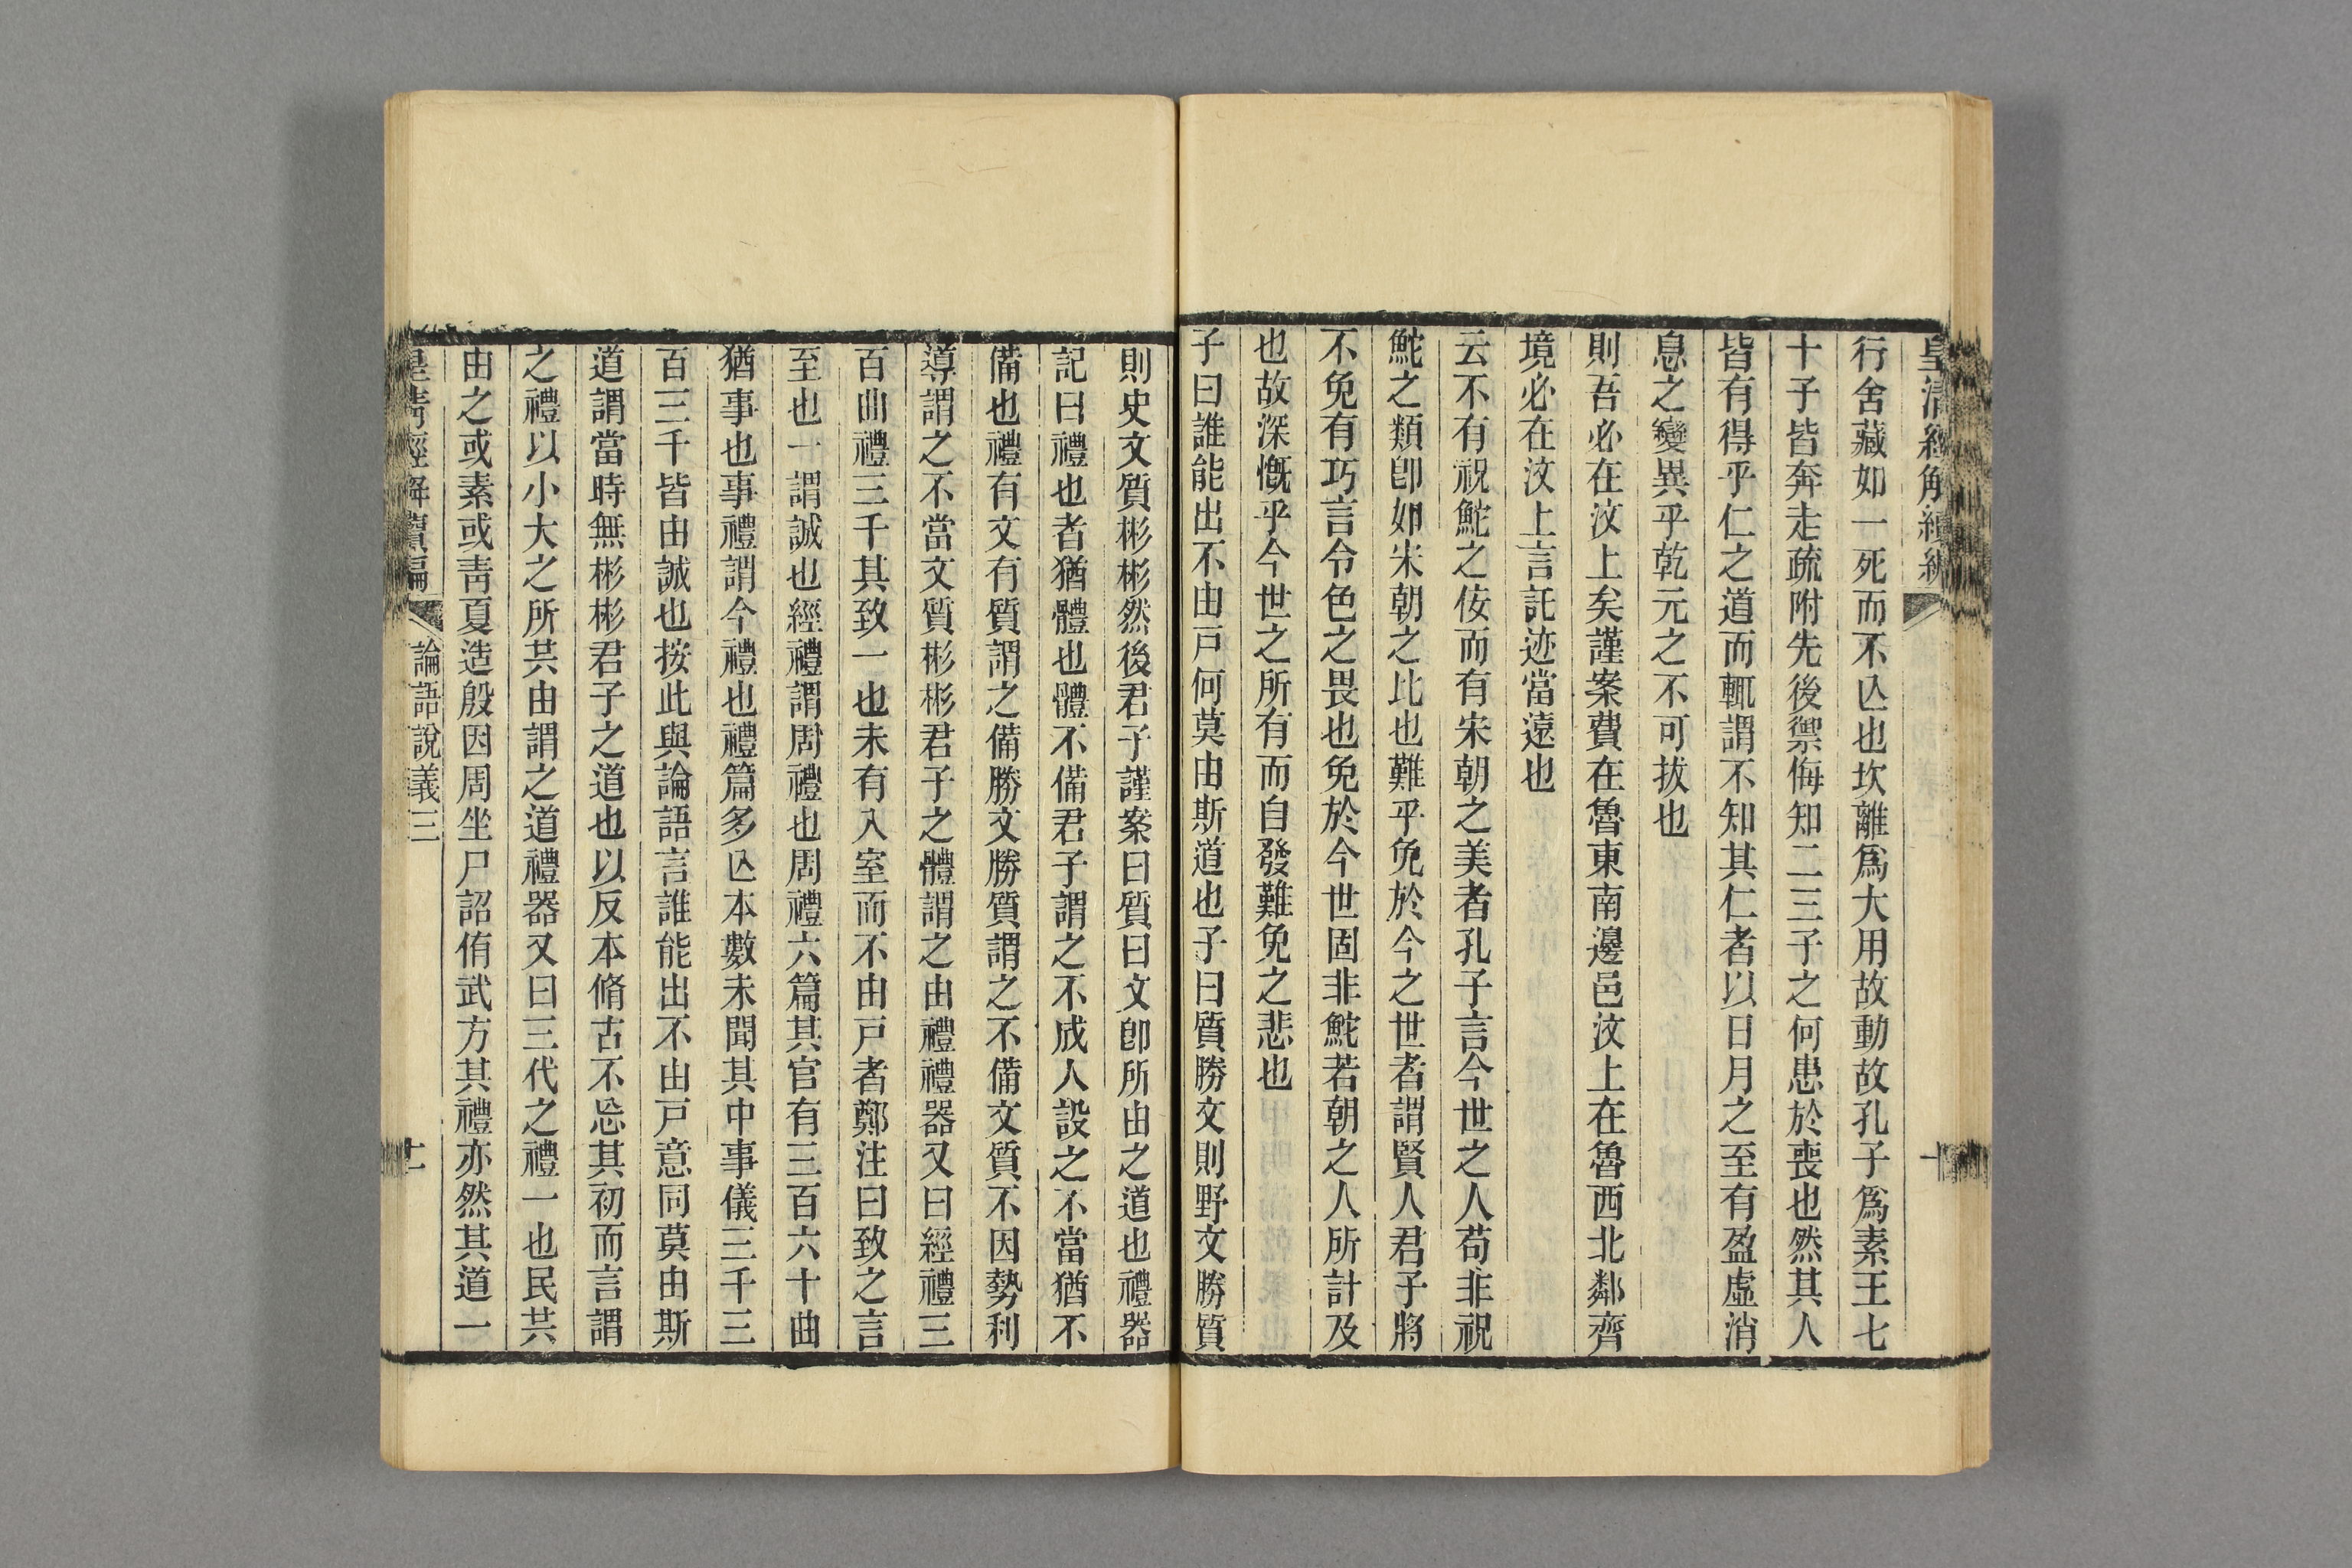 皇清經解續編
行舍藏如一死而不亾也坎離爲大用故動故孔子爲素王七
十子皆奔走疏附先後禦侮知二三子之何患於喪也然其人
皆有得乎仁之道而輒謂不知其仁者以日月之至有盈虛消
息之變異乎乾元之不可拔也
則吾必在汶上矣謹案費在魯東南邊邑汶上在魯西北鄰齊
境必在汶上言託迹當遠也
云不有祝鮀之佞而有宋朝之美者孔子言今世之人苟非祝
鮀之類卽如宋朝之比也難乎免於今之世者謂賢人君子將
不免有巧言令色之畏也免於今世固非鮀若朝之人所計及
也故深慨乎今世之所有而自發難免之悲也
子曰誰能出不由戸何莫由斯道也子曰質勝文則野文勝質
則史文質彬彬然後君子謹案曰質曰文卽所由之道也禮器
記曰禮也者猶體也體不備君子謂之不成人設之不當猶不
備也禮有文有質謂之備勝文勝質謂之不備文質不因勢利
導謂之不當文質彬彬君子之體謂之由禮禮器又曰經禮三
百曲禮三千其致一也未有入室而不由戸者鄭注曰致之言
至也一謂誠也經禮謂周禮也周禮六篇其官有三百六十曲
猶事也事禮謂今禮也禮篇多亾本數未聞其中事儀三千三
百三千皆由誠也按此與論語言誰能出不由戸意同莫由斯
道謂當時無彬彬君子之道也以反本脩古不忘其初而言謂
之禮以小大之所共由謂之道禮器又曰三代之禮一也民共
由之或素或靑夏造殷因周坐尸詔侑武方其禮亦然其道一
皇清經解續編
論語說義三
十一